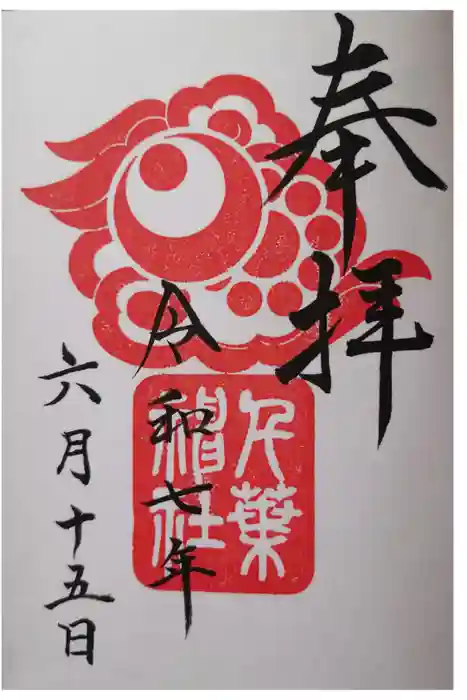 奉拝
千葉
神社
令和七年
六月十五日